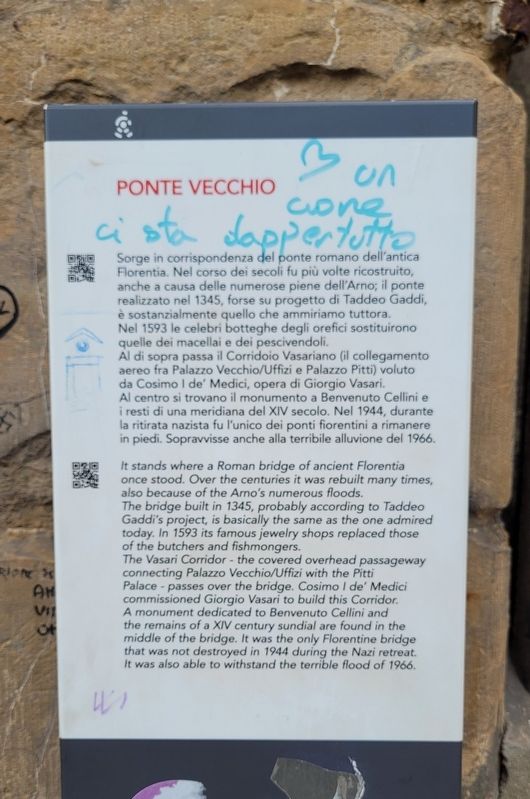 PONTE VECCHIO
un
cuore
ci sta dappertutto
Sorge in corrispondenza del ponte romano dell'antica
Florentia. Nel corso dei secoli fu più volte ricostruito,
anche a causa delle numerose piene dell'Arno; il ponte
realizzato nel 1345, forse su progetto di Taddeo Gaddi,
è sostanzialmente quello che ammiriamo tuttora.
Nel 1593 le celebri botteghe degli orefici sostituirono
quelle dei macellai e dei pescivendoli.
Al di sopra passa il Corridoio Vasariano (il collegamento
aereo fra Palazzo Vecchio/Uffizi e Palazzo Pitti) voluto
da Cosimo I de' Medici, opera di Giorgio Vasari.
Al centro si trovano il monumento a Benvenuto Cellini e
i resti di una meridiana del XIV secolo. Nel 1944, durante
la ritirata nazista fu l'unico dei ponti fiorentini a rimanere
in piedi. Sopravvisse anche alla terribile alluvione del 1966.
It stands where a Roman bridge of ancient Florentia
once stood. Over the centuries it was rebuilt many times,
also because of the Arno's numerous floods.
The bridge built in 1345, probably according to Taddeo
Gaddi's project, is basically the same as the one admired
today. In 1593 its famous jewelry shops replaced those
of the butchers and fishmongers.
The Vasari Corridor - the covered overhead passageway
connecting Palazzo Vecchio/Uffizi with the Pitti
Palace - passes over the bridge. Cosimo I de' Medici
commissioned Giorgio Vasari to build this Corridor.
A monument dedicated to Benvenuto Cellini and
the remains of a XIV century sundial are found in the
middle of the bridge. It was the only Florentine bridge
that was not destroyed in 1944 during the Nazi retreat.
It was also able to withstand the terrible flood of 1966.